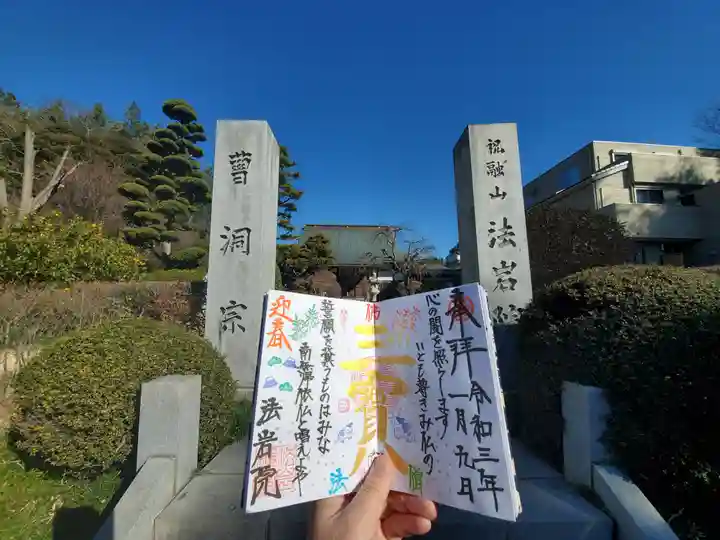 曹洞宗
祝融山
法岩院
奉拝
令和三年
一月九日
心の闇を照らします
いとも尊きみ仏の
三宝
佛
法
僧
誓願を喜ぶものはみな
南無釈迦仏と唱え
迎春
法岩院